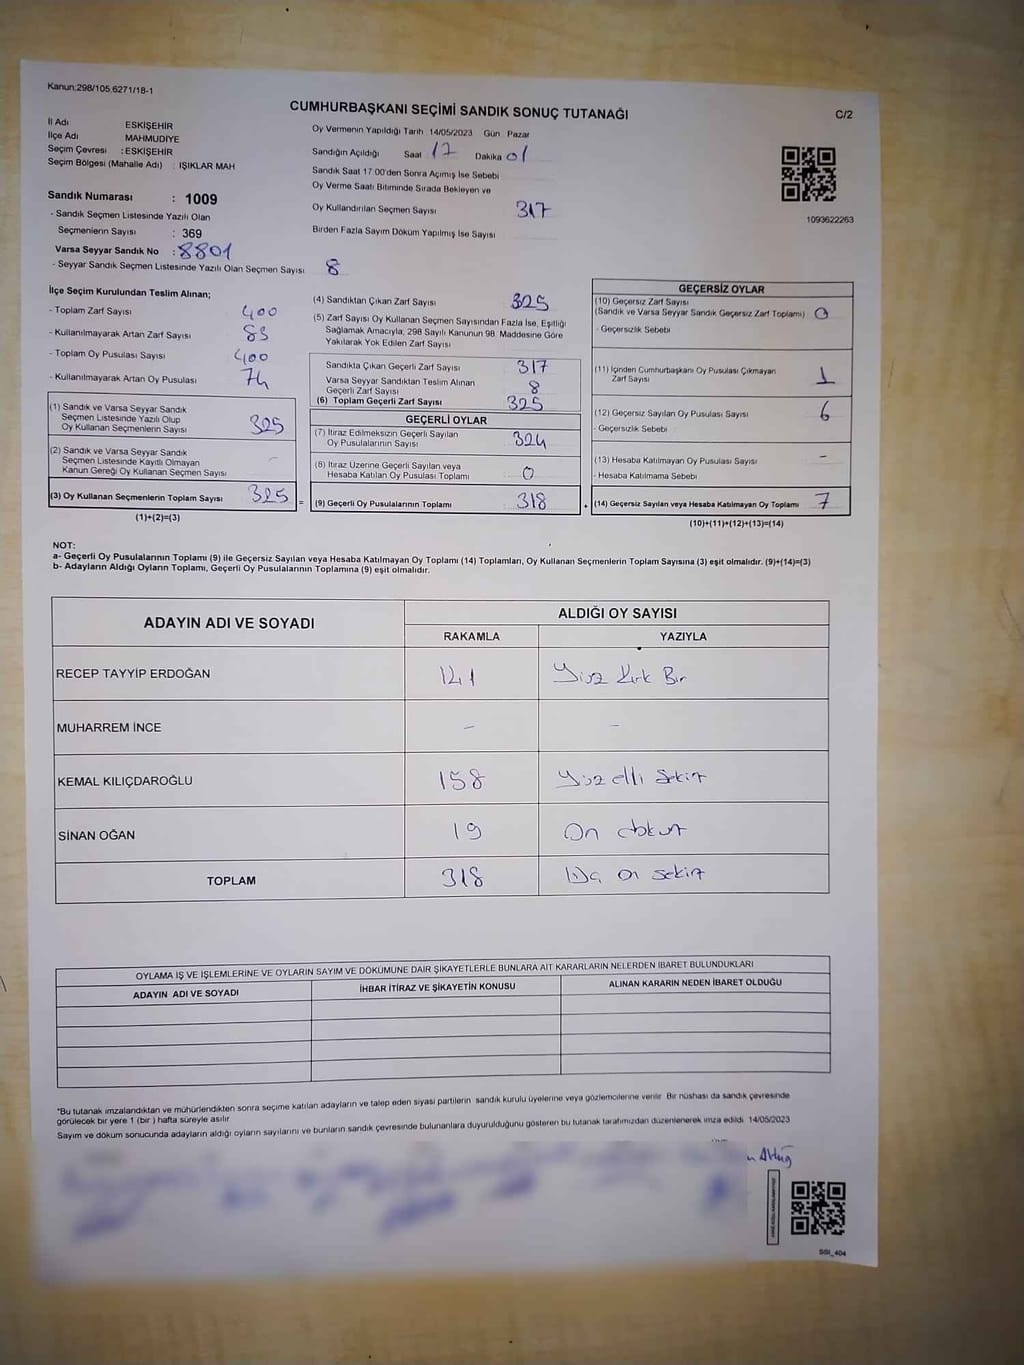 Kanun:298/105,6271/18-1
CUMHURBAŞKANI SEÇİMİ SANDIK SONUÇ TUTANAĞI
C/2
İl Adı ESKİŞEHİR
İlçe Adı MAHMUDİYE
Seçim Çevresi : ESKİŞEHİR
Seçim Bölgesi (Mahalle Adı) : IŞIKLAR MAH
Oy Vermenin Yapıldığı Tarih 14/05/2023 Gün Pazar
Sandığın Açıldığı Saat 17 Dakika 01
Sandık Saat 17:00'den Sonra Açımış İse Sebebi
Oy Verme Saati Bitiminde Sırada Bekleyen ve
Oy Kullandırılan Seçmen Sayısı 317
Birden Fazla Sayım Döküm Yapılmış İse Sayısı
1093622263
Sandık Numarası : 1009
- Sandık Seçmen Listesinde Yazılı Olan
Seçmenlerin Sayısı : 369
Varsa Seyyar Sandık No : 8801
- Seyyar Sandık Seçmen Listesinde Yazılı Olan Seçmen Sayısı 8
İlçe Seçim Kurulundan Teslim Alınan;
- Toplam Zarf Sayısı 400
- Kullanılmayarak Artan Zarf Sayısı 83
- Toplam Oy Pusulası Sayısı 400
- Kullanılmayarak Artan Oy Pusulası 74
(1) Sandık ve Varsa Seyyar Sandık
Seçmen Listesinde Yazılı Olup
Oy Kullanan Seçmenlerin Sayısı 325
(2) Sandık ve Varsa Seyyar Sandık
Seçmen Listesinde Kayıtlı Olmayan
Kanun Gereği Oy Kullanan Seçmen Sayısı -
(3) Oy Kullanan Seçmenlerin Toplam Sayısı 325 =
(1)+(2)=(3)
(4) Sandıktan Çıkan Zarf Sayısı 325
(5) Zarf Sayısı Oy Kullanan Seçmen Sayısından Fazla İse, Eşitliği
Sağlamak Amacıyla, 298 Sayılı Kanunun 98. Maddesine Göre
Yakılarak Yok Edilen Zarf Sayısı
Sandıkta Çıkan Geçerli Zarf Sayısı 317
Varsa Seyyar Sandıktan Teslim Alınan
Geçerli Zarf Sayısı 8
(6) Toplam Geçerli Zarf Sayısı 325
GEÇERLİ OYLAR
(7) İtiraz Edilmeksizin Geçerli Sayılan
Oy Pusulalarının Sayısı 324
(8) İtiraz Üzerine Geçerli Sayılan veya
Hesaba Katılan Oy Pusulaları Toplamı 0
(9) Geçerli Oy Pusulalarının Toplamı 318
GEÇERSİZ OYLAR
(10) Geçersiz Zarf Sayısı
(Sandık ve Varsa Seyyar Sandık Geçersiz Zarf Toplamı) 0
- Geçersizlik Sebebi
(11) İçinden Cumhurbaşkanı Oy Pusulası Çıkmayan
Zarf Sayısı 1
(12) Geçersiz Sayılan Oy Pusulası Sayısı 6
- Geçersizlik Sebebi
(13) Hesaba Katılmayan Oy Pusulası Sayısı -
- Hesaba Katılmama Sebebi
(14) Geçersiz Sayılan veya Hesaba Katılmayan Oy Toplamı 7
(10)+(11)+(12)+(13)=(14)
NOT:
a- Geçerli Oy Pusulalarının Toplamı (9) ile Geçersiz Sayılan veya Hesaba Katılmayan Oy Toplamı (14) Toplamları, Oy Kullanan Seçmenlerin Toplam Sayısına (3) eşit olmalıdır. (9)+(14)=(3)
b- Adayların Aldığı Oyların Toplamı, Geçerli Oy Pusulalarının Toplamına (9) eşit olmalıdır.
ADAYIN ADI VE SOYADI ALDIĞI OY SAYISI
RAKAMLA YAZIYLA
RECEP TAYYİP ERDOĞAN 141 Yüz Kırk Bir
MUHARREM İNCE - -
KEMAL KILIÇDAROĞLU 158 Yüz elli sekiz
SİNAN OĞAN 19 On dokuz
TOPLAM 318 on sekiz
OYLAMA İŞ VE İŞLEMLERİNE VE OYLARIN SAYIM VE DÖKÜMÜNE DAİR ŞİKAYETLERLE BUNLARA AİT KARARLARIN NELERDEN İBARET BULUNDUKLARI
ADAYIN ADI VE SOYADI İHBAR İTİRAZ VE ŞİKAYETİN KONUSU ALINAN KARARIN NEDEN İBARET OLDUĞU
*Bu tutanak imzalandıktan ve mühürlendikten sonra seçime katılan adayların ve talep eden siyasi partilerin sandık kurulu üyelerine veya gözlemcilerine verilir. Bir nüshası da sandık çevresinde
görülecek bir yere 1 (bir) hafta süreyle asılır
Sayım ve döküm sonucunda adayların aldığı oyların sayılarını ve bunların sandık çevresinde bulunanlara duyurulduğunu gösteren bu tutanak tarafımızdan düzenlenerek imza edildi. 14/05/2023
SSI_404